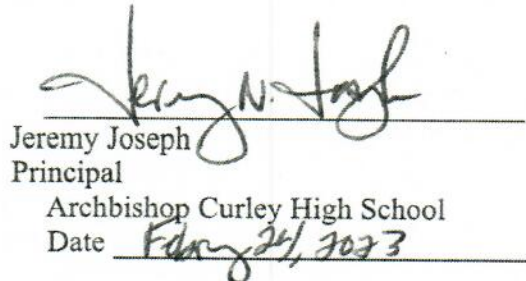 Jeremy N. Joseph
Jeremy Joseph
Principal
Archbishop Curley High School
Date February 24, 2023